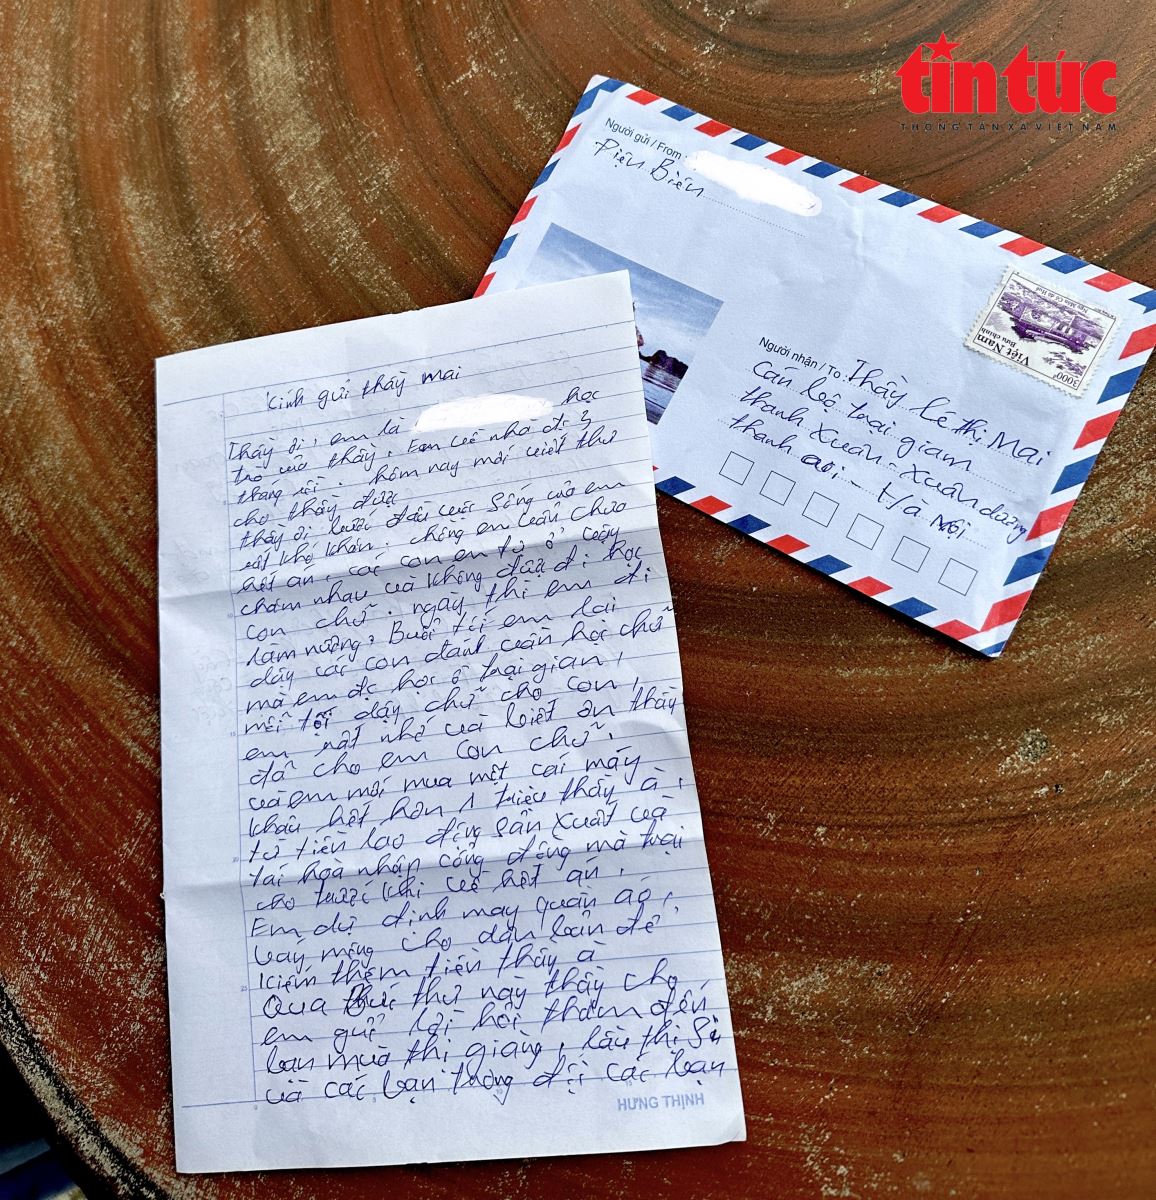 tin tức
THÔNG TẤN XÃ VIỆT NAM
Người gửi / From
Điện Biên
Việt Nam
Bưu chính
3000đ
Người nhận / To: Thầy Lê thị Mai
Cán bộ trại giam
thanh Xuân - Xuân dương
thanh oai - Hà Nội
Kính gửi thầy mai
Thầy ơi, em là học
trò của thầy, Em về nhà đc 3
tháng rồi. hôm nay mới viết thư
cho thầy được
thầy ơi bước đầu cuộc sống của em
rất khó khăn. chồng em vẫn chưa
hết án, các con em tự ở vậy
chăm nhau và không được đi học
con chữ. ngày thì em đi
làm nương, Buổi tối em lại
dạy các con đánh vần học chữ
mà em đc học ở trại giam,
mỗi tối dậy chữ cho con,
em rất nhớ và biết ơn thầy
đã cho em con chữ,
và em mới mua một cái máy
khâu hết hơn 1 triệu thầy ạ,
từ tiền lao động sản xuất và
tái hoà nhập cộng đồng mà trại
cho trước khi về hết án,
Em dự định may quần áo,
váy mông cho dân bản để
kiếm thêm tiền thầy à
Qua bức thư này thầy cho
em gửi lời hỏi thăm đến
bạn mùa thị giàng, lầu thị Sú
và các bạn trong đội các bạn
HƯNG THỊNH